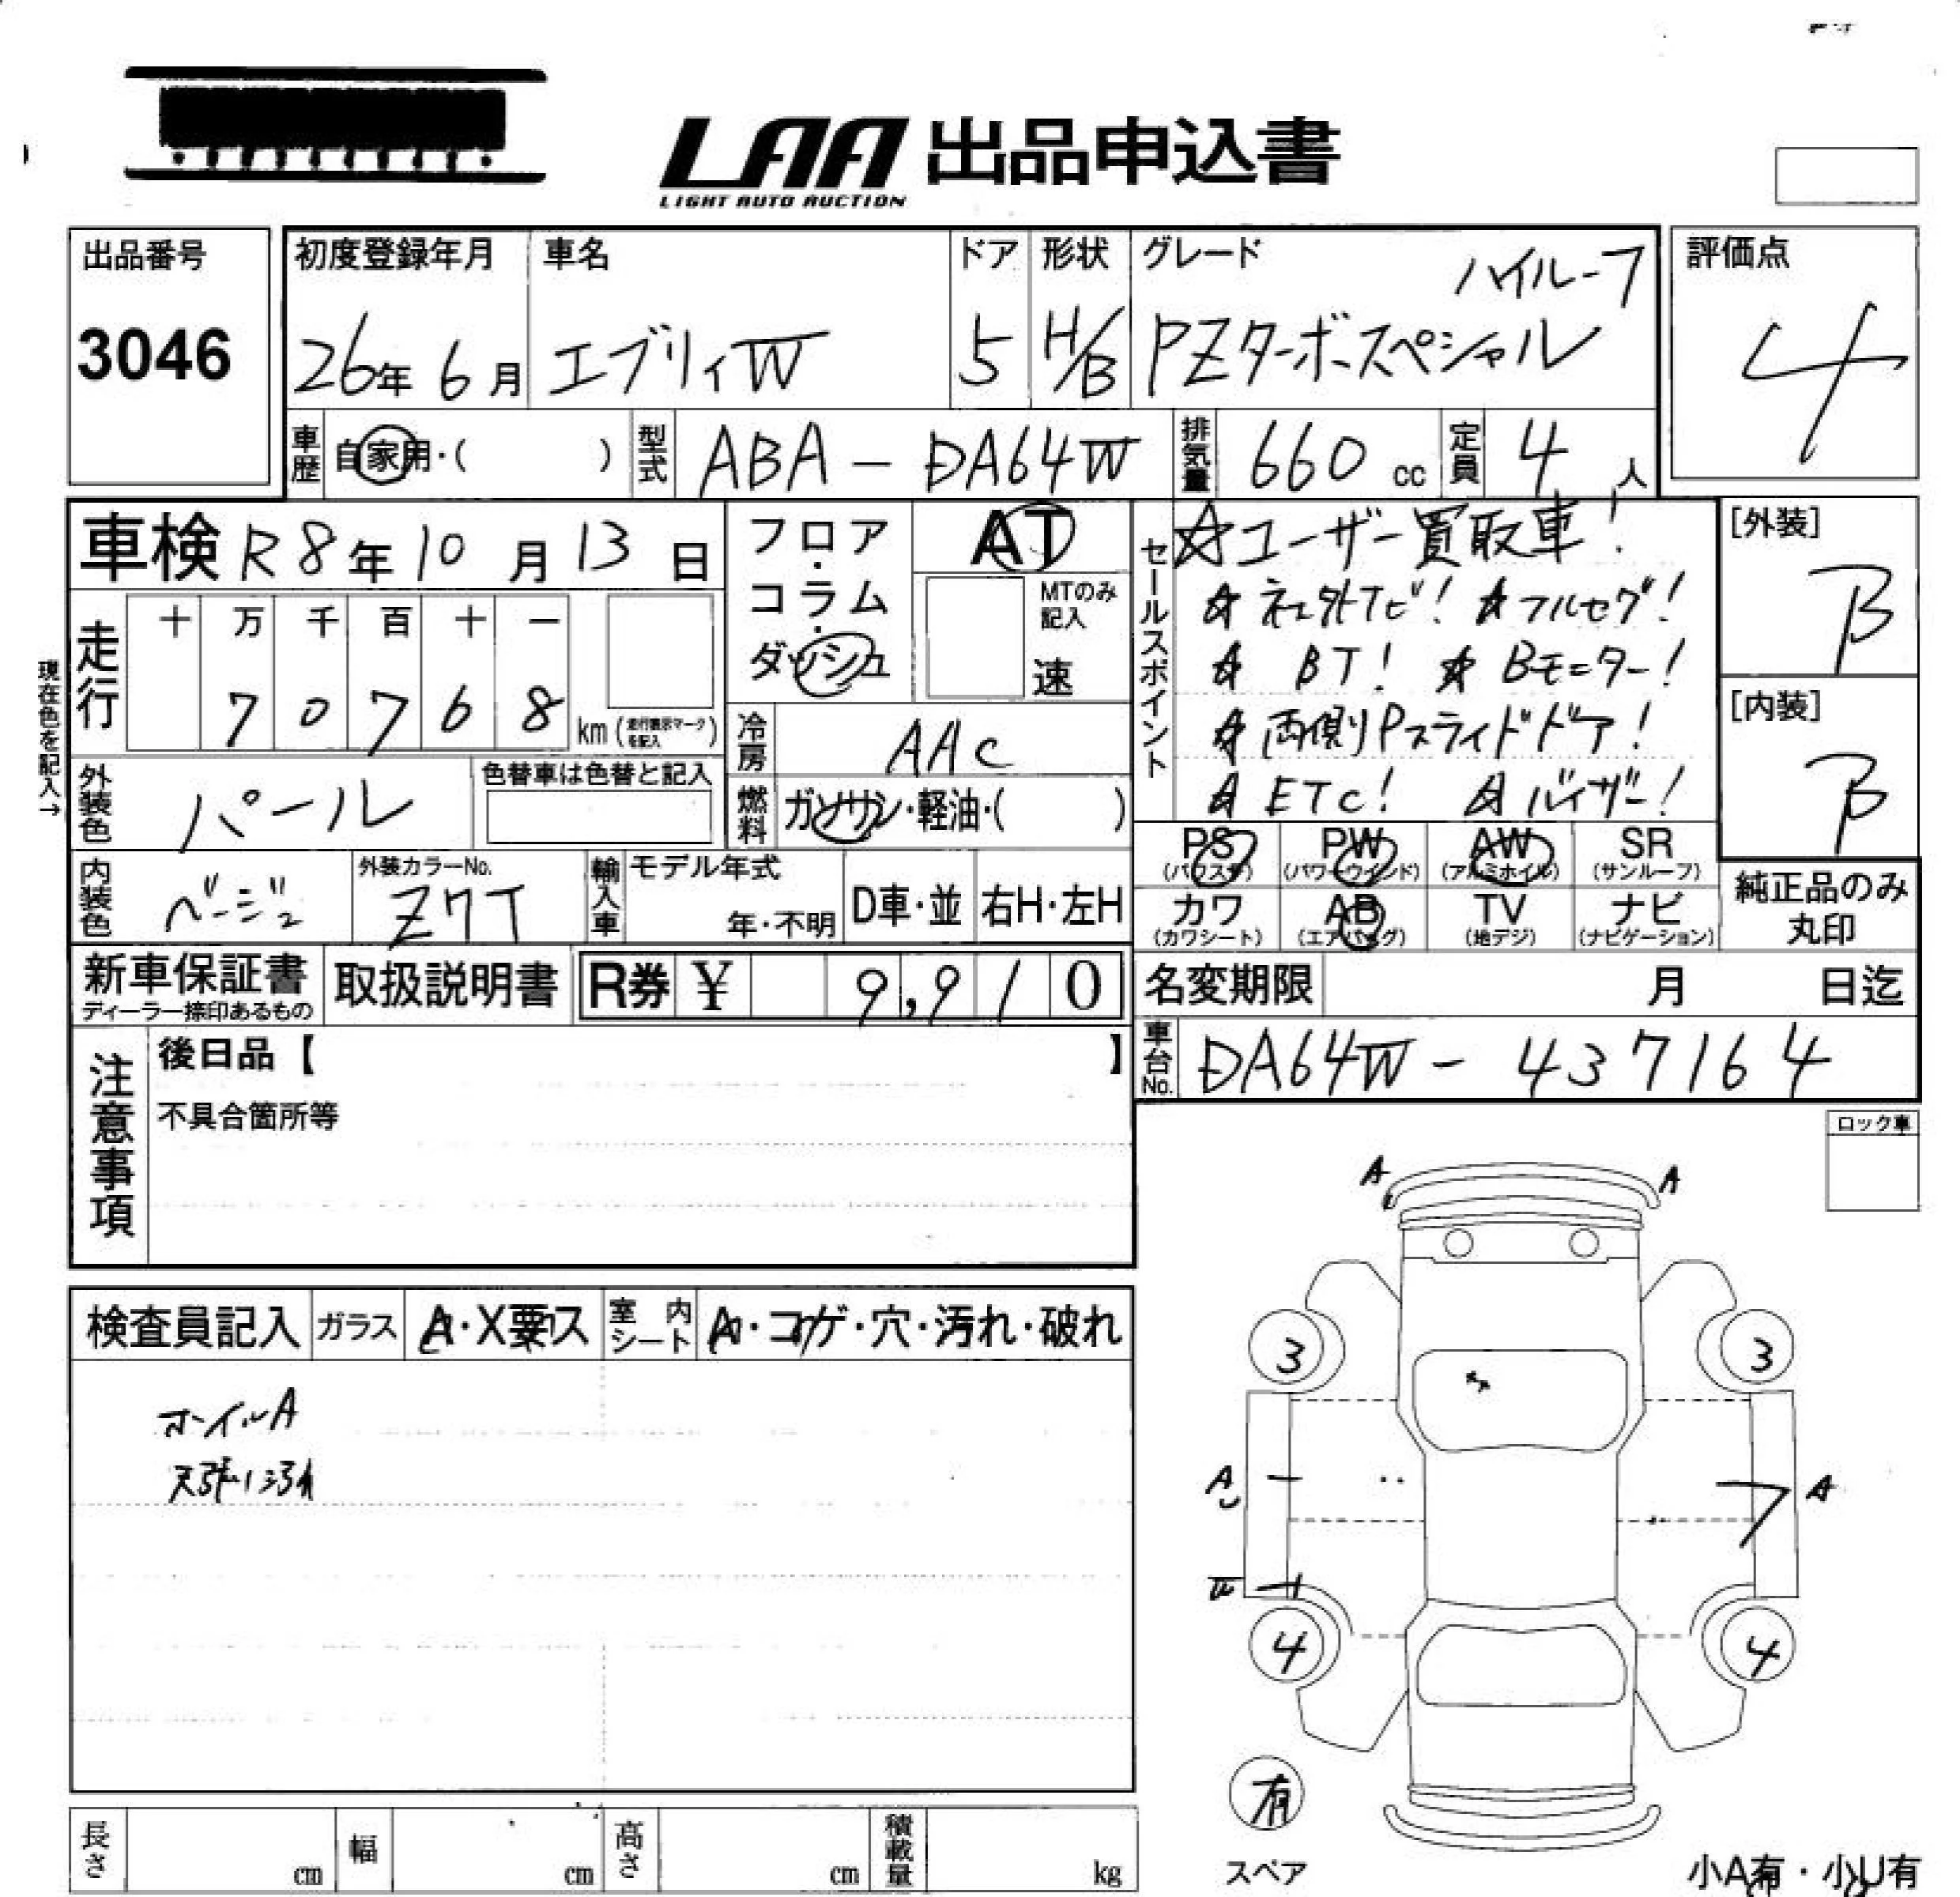 LAA 出品申込書
LIGHT AUTO AUCTION
出品番号
3046
初度登録年月
26年 6月
車名
エブリィW
ドア
5
形状
H/B
グレード
ハイルーフ
PZターボスペシャル
評価点
4
車歴 自家用・( )
型式 ABA-DA64W
排気量 660 cc
定員 4 人
車検 R8年10月13日
フロア・コラム・ダッシュ
AT
MTのみ記入
速
セールスポイント
☆ユーザー買取車!
☆社外ナビ! ☆フルセグ!
☆BT! ☆Bモニター!
☆両側Pスライドドア!
☆ETC! ☆バイザー!
[外装]
B
[内装]
B
現在色を記入→
走行
十 万 千 百 十 一
7 0 7 6 8
km (走行表示マークを記入)
冷房 AAC
燃料 ガソリン・軽油・( )
外装色 パール
色替車は色替と記入
内装色 ベージュ
外装カラーNo.
Z7T
輸入車
モデル年式
年・不明
D車・並
右H・左H
PS (パワステ)
PW (パワーウインド)
AW (アルミホイル)
SR (サンルーフ)
カワ (カワシート)
AB (エアバッグ)
TV (地デジ)
ナビ (ナビゲーション)
純正品のみ丸印
新車保証書
ディーラー捺印あるもの
取扱説明書
R券 ¥ 9,910
名変期限 月 日迄
車台No. DA64W-437164
注意事項
後日品【 】
不具合箇所等
ロック車
検査員記入
ガラス A・X要ス
室内シート A・コゲ・穴・汚れ・破れ
ホイルA
A A
3 3
A A
4 4
有
スペア
小A有・小U有
長さ cm
幅 cm
高さ cm
積載量 kg